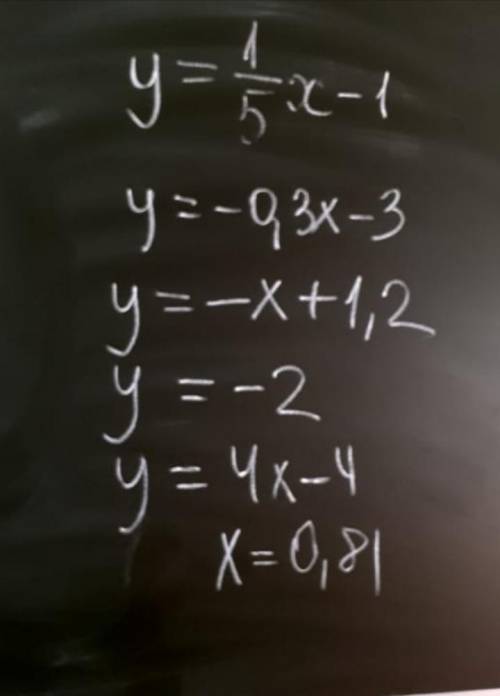 y = 1/5 x - 1
y = -0,3x - 3
y = -x + 1,2
y = -2
y = 4x - 4
x = 0,81